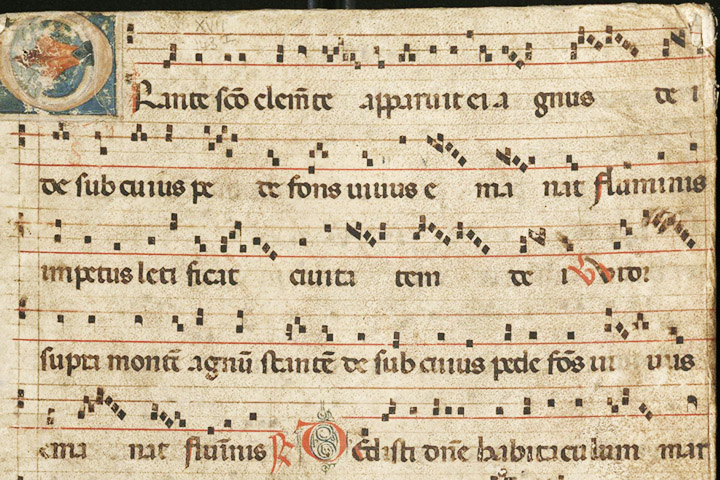 ORante sc̄o clem̄te apparuit ei agnus de i
de sub cuius pede fons uiuus emanat fluminis
impetus letificat ciuitatem dei V Vidi
supra montē agnū stantē de sub cuius pede fōs uiuus
emanat flum̄is R Dedisti dn̄e habitaculum mar